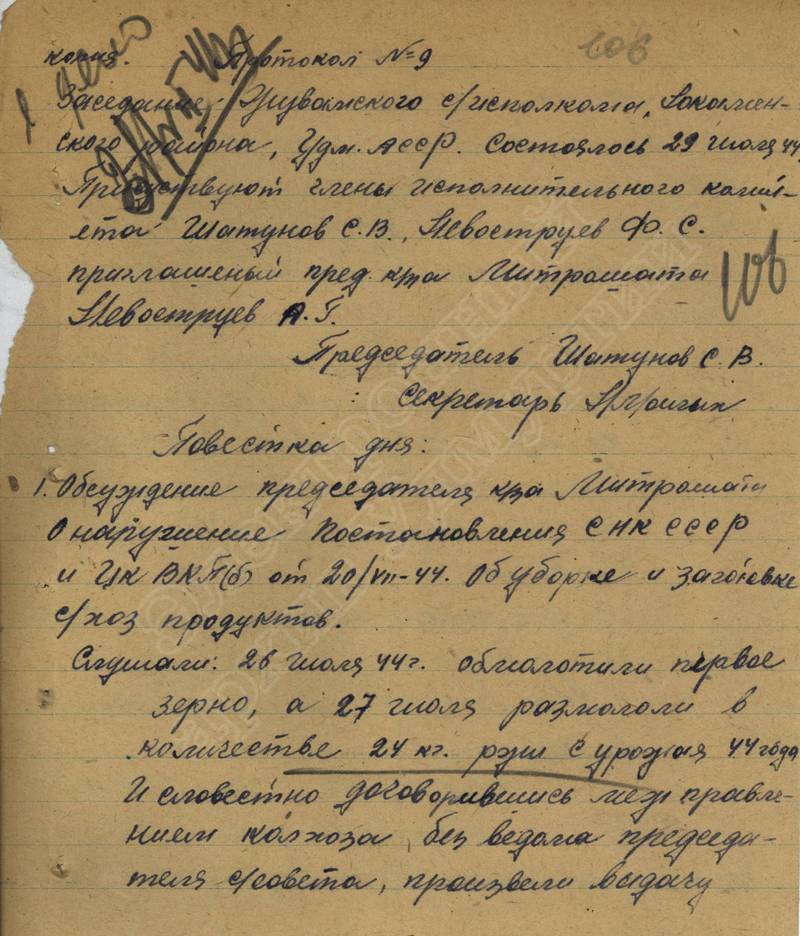 копия. Протокол №9
106
Заседание с/исполкома,
ского района, Удм. АССР. Состоялось 29 июля 44
Присутствуют члены исполнительного коми-
тета Шатунов С.В., Невоструев Ф. С.
приглашеный пред. к-за Митрошата
106
Невоструев А.Г.
Председатель Шатунов С. В.
Секретарь
Повестка дня:
1. Обсуждение председателя к-за Митрошата
О нарушение Постановления СНК СССР
и ЦК ВКП(б) от 20/VII-44. Об уборке и заготовке
с/хоз продуктов.
Слушали: 26 июля 44г. обмолотили первое
зерно, а 27 июля размололи в
количестве 24 кг. ржи с урожая 44 года
И словестно договорившись меж правле-
нием колхоза, без ведома председа-
теля с/совета, произвели выдачу